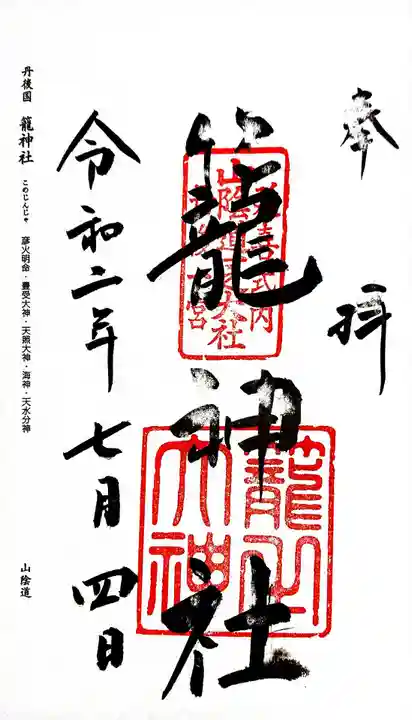 奉拝
籠神社
延喜式内
山陰道一之大社
丹後一宮
籠之大神
令和二年七月四日
丹後国 籠神社 このじんじゃ 彦火明命・豊受大神・天照大神・海神・天水分神 山陰道